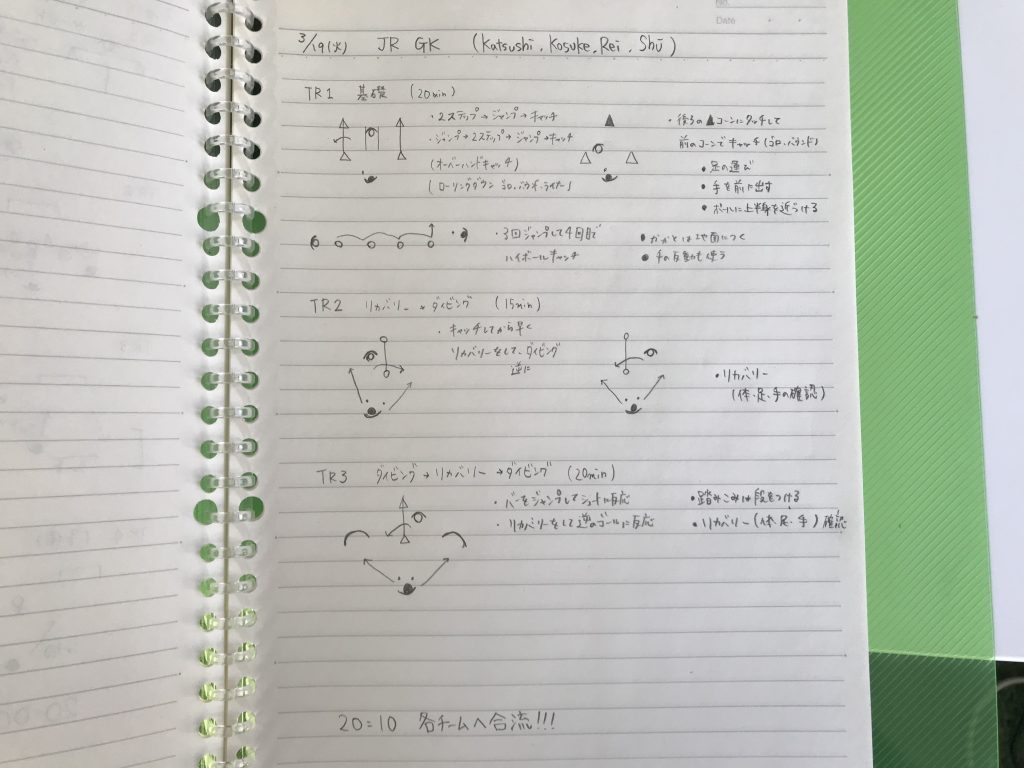 No.
Date
3/19(火) JR GK (Katsushi, Kosuke, Rei, Shu)
TR1 基礎 (20min)
・2ステップ→ジャンプ→キャッチ
・ジャンプ→2ステップ→ジャンプ→キャッチ
(オーバーハンドキャッチ)
(ローリングダウン ゴロ、バウンド、ライナー)
・後ろの▲コーンにタッチして
前のコーンでキャッチ(ゴロ・バウンド)
・足の運び
・手を前に出す
・ボールに上半身を近づける
・3回ジャンプして4回目で
ハイボールキャッチ
・かかとは地面につく
・手の反動も使う
TR2 リカバリー→ダイビング (15min)
・キャッチしてから早く
リカバリーをして、ダイビング
逆に
・リカバリー
(体、足、手の確認)
TR3 ダイビング→リカバリー→ダイビング (20min)
・バーをジャンプしてシュートに反応
・リカバリーをして逆のゴールに反応
・踏みこみは段をつける
・リカバリー(体、足、手)確認
20:10 各チームへ合流!!!